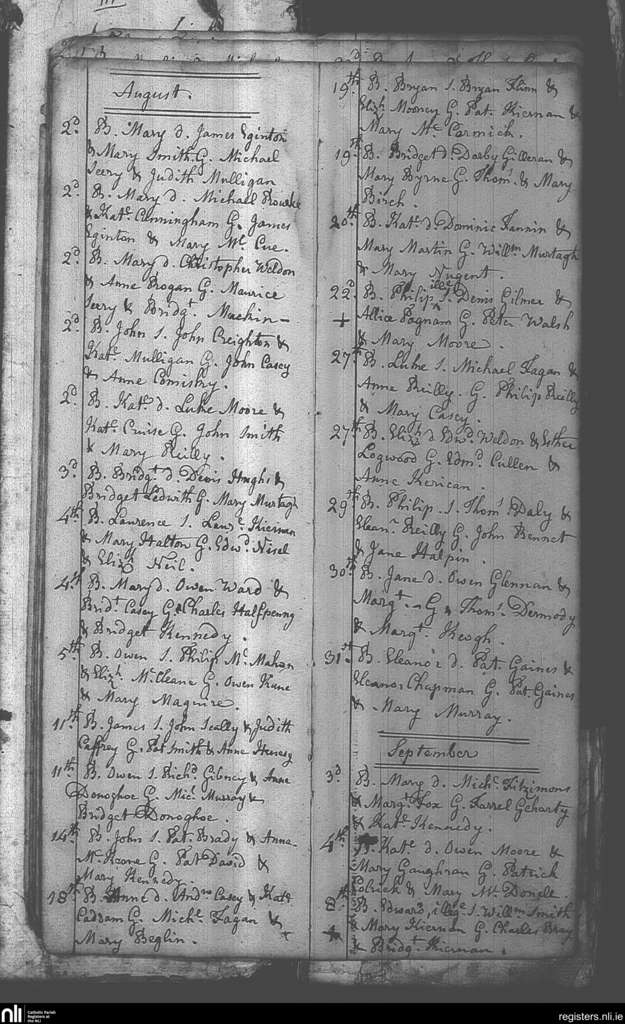 August.
2d B. Mary d. James Eginton
& Mary Smith G. Michael
Seery & Judith Mulligan
2d B. Mary d. Michael Rourke
& Kate. Cunningham G. James
Eginton & Mary Mc. Cue.
2d B. Mary d. Christopher Weldon
& Anne Brogan G. Maurice
Seery & Bridgt. Machin —
2d B. John S. John Creighton &
Kate. Mulligan G. John Casey
& Anne Comisky.
2d B. Kate. d. Luke Moore &
Kate. Cruise G. John Smith
& Mary Reilly.
3d B. Bridgt. d. Denis Hughs &
Bridget Ledwith G. Mary Murtagh
4th B. Laurence S. Lawce. Kiernan
& Mary Halton G. Edwd. Nisel
& Eliz. Neil.
4th B. Mary d. Owen Ward &
Bridt. Casey G. Charles Halfpenny
& Bridget Kennedy.
5th B. Owen S. Philip Mc. Mahon
& Elizh. McCleane G. Owen Kane
& Mary Maguire.
11th B. James S. John Scally & Judith
Caffrey G. Pat Smith & Anne
11th B. Owen S. Richd. Gibney & Anne
Donoghoe G. Micl. Murray &
Bridget Donoghoe.
14th B. John S. Pat. Brady & Anne
Mc. Keone G. Pat David &
Mary Kennedy.
18th B. Anne d. Andw. Casey & Kate
Cadram G. Michl. Fagan &
Mary Beglin.
19th B. Bryan S. Bryan Flinn &
Elizh. Mooney G. Pat. Kiernan &
Mary Mc. Cormick.
19th B. Bridget d. Darby Gilleran &
Mary Byrne G. Thoms. & Mary
Birch.
20th B. Kate. d. Dominic Fannin &
Mary Martin G. Willm. Murtagh
& Mary Nugent.
22d B. Philip S. Denis Gilmer &
+ Allice Pagnam G. Peter Walsh
& Mary Moore.
27th B. Luke S. Michael Fagan &
Anne Reilly. G. Philip Reilly
& Mary Casey.
27th B. Elizh. d. Edwd. Weldon & Esther
Logwood G. Edmd. Cullen &
Anne Kerican.
29th B. Philip S. Thoms. Daly &
Eleanr. Reilly G. John Bennet
& Jane Halpin.
30th B. Jane d. Owen Glennan &
Margt. — G Thoms. Dermody
& Margt. Keogh.
31st B. Eleanor d. Pat. Gaines &
Eleanor Chapman G. Pat. Gaines
& Mary Murray.
September
3d B. Mary d. Michl. Fitzimons
& Margt. Fox G. Farrel Geharty
& Kate. Kennedy.
4th B. Kate d. Owen Moore &
Mary Gaughran G. Patrick
& Mary Mc. Donell.
8th B. Edward, illege. S. Willm. Smith
+ & Mary Kiernan G. Charles Bray
& Bridgt. Kiernan.
nli
Catholic Parish
Registers at
the NLI
registers.nli.ie